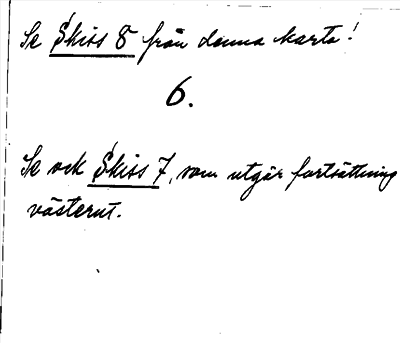 Se Skiss 8 från denna karta!
6.
Se ock Skiss 7, som utgår fortsättning
västerut.